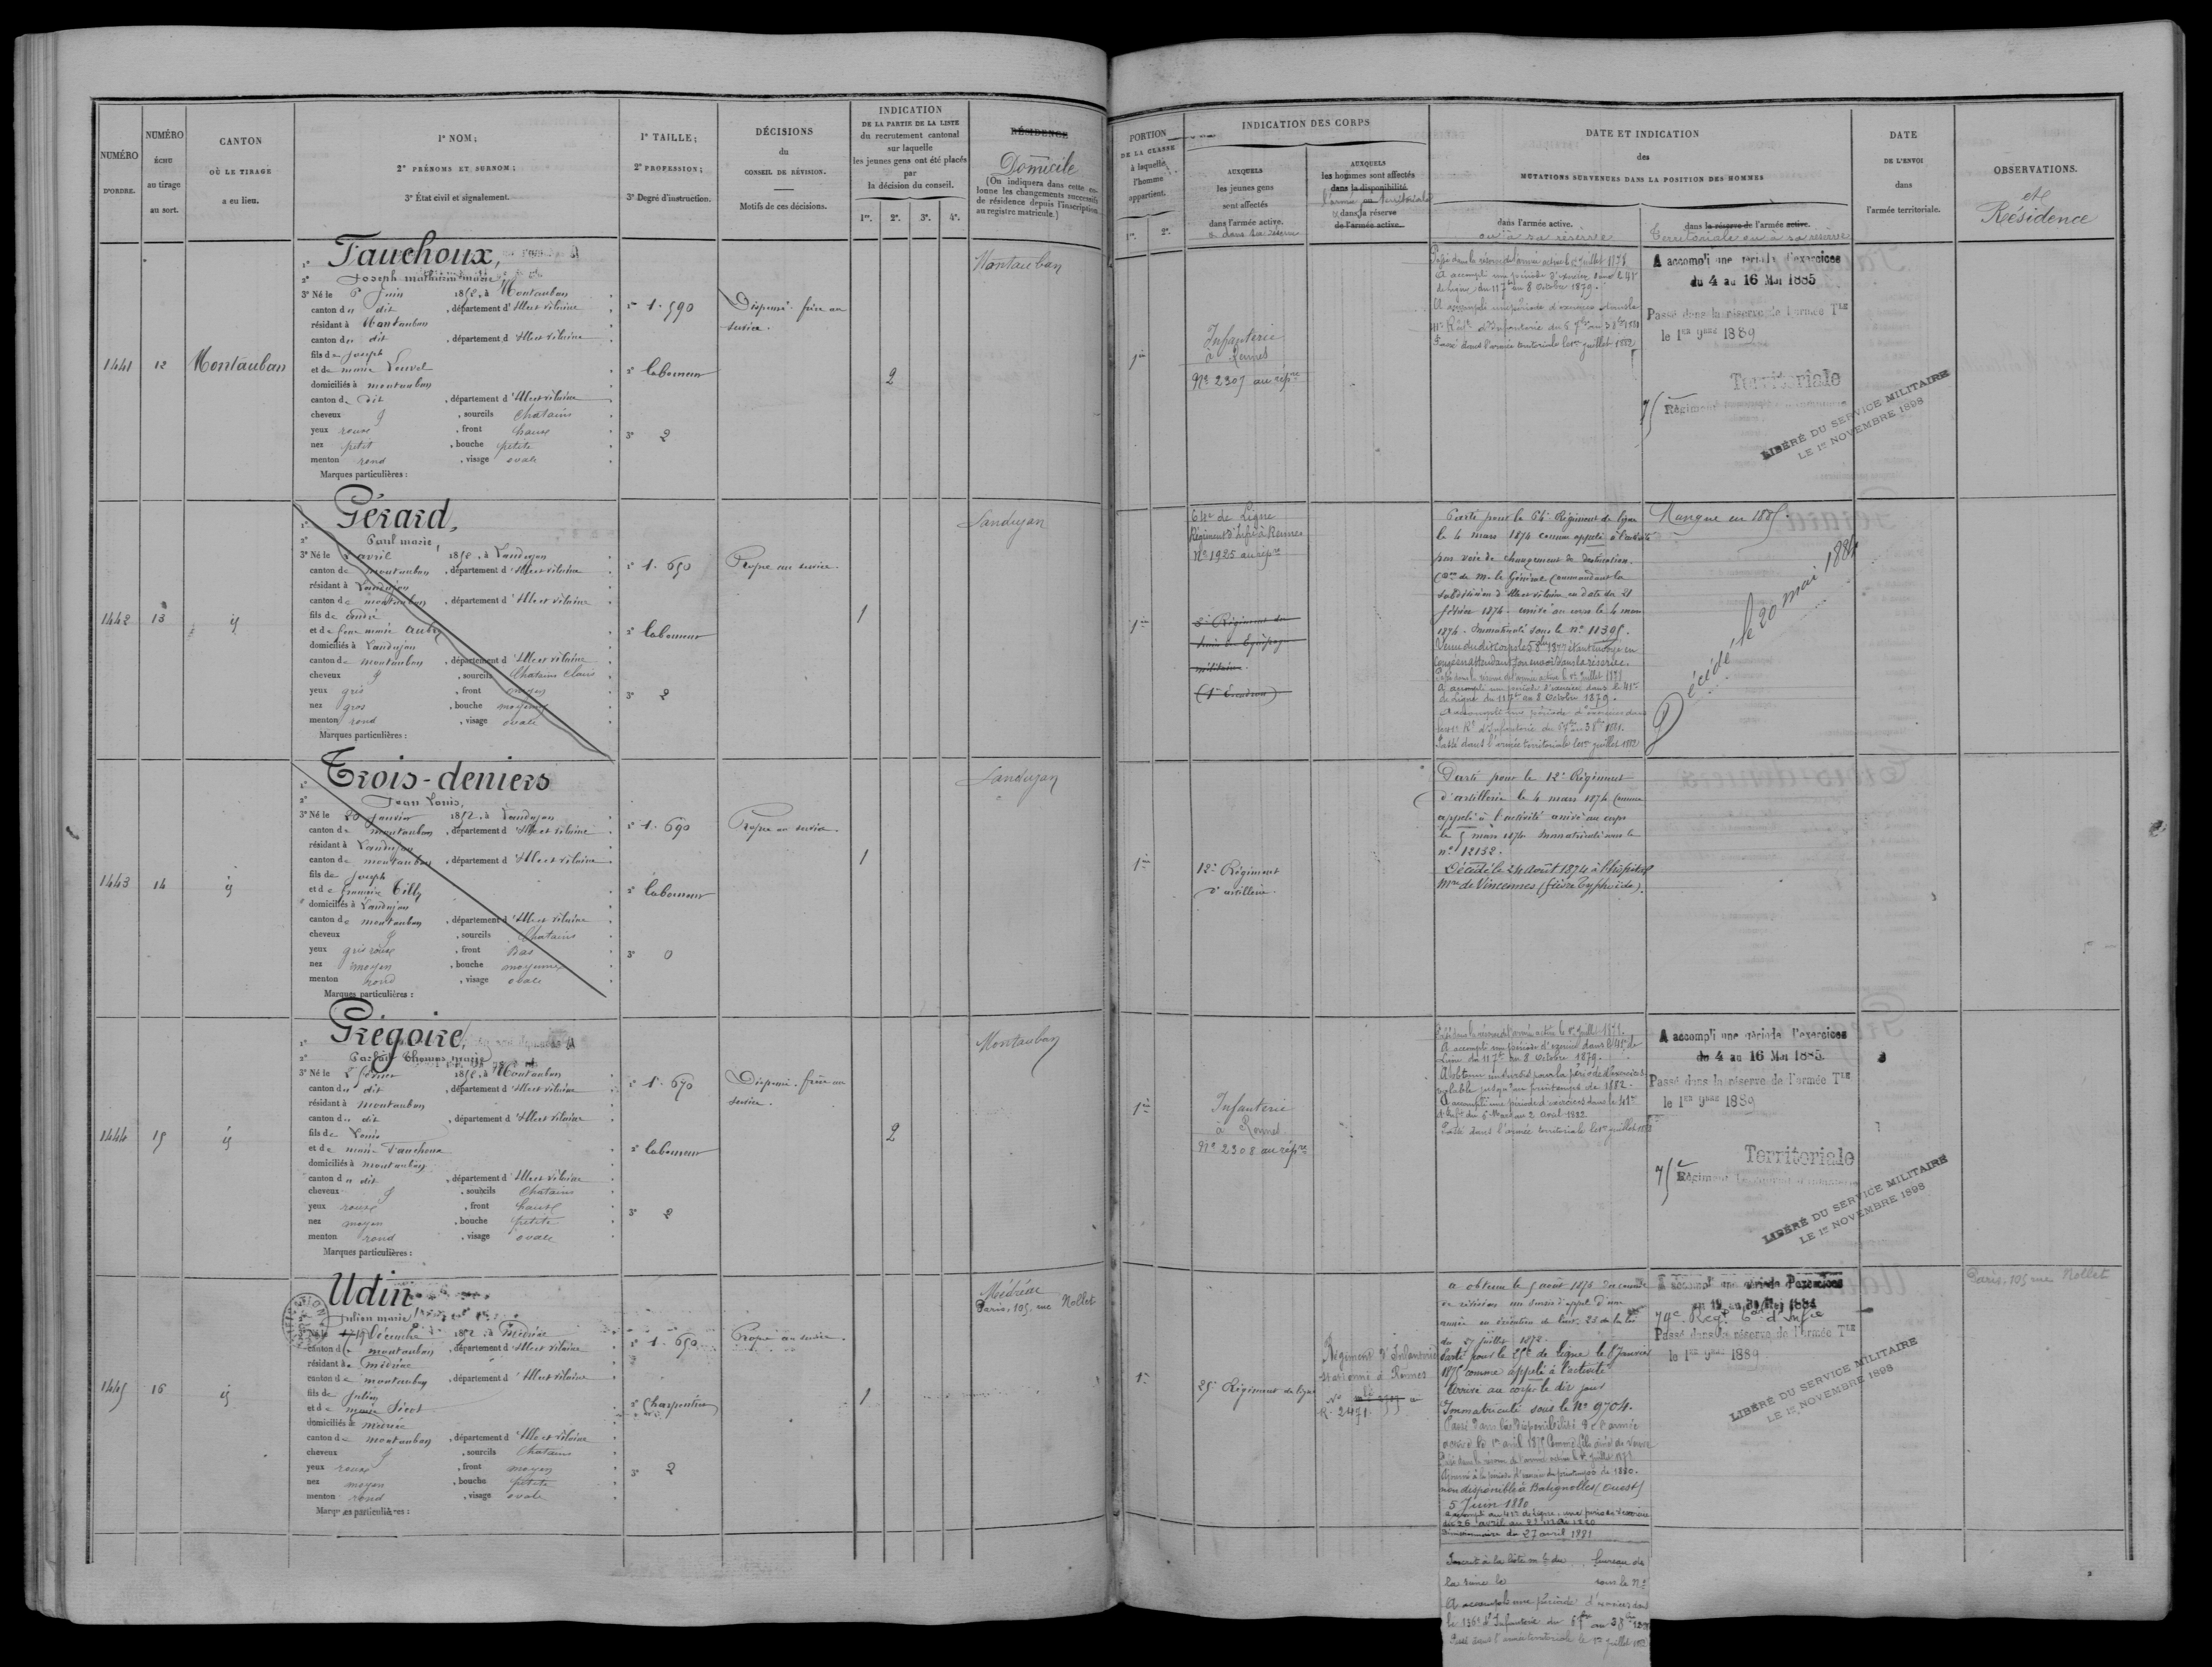 NUMÉRO
D'ORDRE.
NUMÉRO
ÉCHU
au tirage
au sort.
CANTON
OÙ LE TIRAGE
a eu lieu.
1° NOM;
2° PRÉNOMS ET SURNOM;
3° État civil et signalement.
1° TAILLE;
2° PROFESSION;
3° Degré d'instruction.
DÉCISIONS
du
CONSEIL DE RÉVISION.
Motifs de ces décisions.
INDICATION
DE LA PARTIE DE LA LISTE
du recrutement cantonal
sur laquelle
les jeunes gens ont été placés
par
la décision du conseil.
1re. 2e. 3e. 4e.
RÉSIDENCE
Domicile
(On indiquera dans cette co-
lonne les changements successifs
de résidence depuis l'inscription
au registre matricule.)
PORTION
DE LA CLASSE
à laquelle
l'homme
appartient.
1re. 2e.
INDICATION DES CORPS
AUXQUELS
les jeunes gens
sont affectés
dans l'armée active.
ou dans sa réserve
AUXQUELS
les hommes sont affectés
dans la disponibilité
l'armée territoriale
ou dans la réserve
de l'armée active.
DATE ET INDICATION
des
MUTATIONS SURVENUES DANS LA POSITION DES HOMMES
dans l'armée active.
ou à sa réserve
dans la réserve de l'armée active.
Territoriale ou à sa réserve
DATE
DE L'ENVOI
dans
l'armée territoriale.
OBSERVATIONS.
et
Résidence
1441
12
Montauban
1° Fauchoux,
2° Joseph mathurin marie
3° Né le 6 Juin 1852, à Montauban
canton du dit, département d'Ille et vilaine
résidant à Montauban
canton du dit, département d'Ille et vilaine
fils de Joseph
et de marie Louvel
domiciliés à montauban
canton du dit, département d'Ille et vilaine
cheveux et, sourcils chatains
yeux roux, front haut
nez petit, bouche petite
menton rond, visage ovale
Marques particulières :
1° 1.590
2° laboureur
3° 2
Dispensé. frère au
service.
2
Montauban
1re
Infanterie
à Rennes
No 2307 au rép.re
Passé dans la réserve de l'armée active le 1er Juillet 1878
A accompli une période d'exercices dans le 41e
de ligne du 11 7bre au 8 Octobre 1879.
A accompli une période d'exercices dans le
41e Régt d'Infanterie du 5 7bre au 3 8bre 1881
Passé dans l'armée territoriale le 1er juillet 1882
A accompli une période d'exercices
du 4 au 16 Mai 1885
Passé dans la réserve de l'armée Tle
le 1er 9bre 1889
Territoriale
75 Régiment
LIBÉRÉ DU SERVICE MILITAIRE
LE 1er NOVEMBRE 1898
1442
13
id
1° Gérard,
2° Paul marie,
3° Né le avril 1852, à Landujan
canton de montauban, département d'Ille et vilaine
résidant à Landujan
canton de montauban, département d'Ille et vilaine
fils de andré
et de feue marie Aubry
domiciliés à Landujan
canton de montauban, département d'Ille et vilaine
cheveux et, sourcils chatains clairs
yeux gris, front moyen
nez gros, bouche moyenne
menton rond, visage ovale
Marques particulières :
1° 1.650
2° laboureur
3° 2
Propre au service.
1
Landujan
1re
64e de Ligne
Régiment d'Infie à Rennes
No 1925 au rép.re
Régiment du
train des Equipages
militaires.
Parti pour le 64e Régiment de ligne
le 4 mars 1874 comme appelé à l'activité
par voie de changement de destination.
(On de M. le Général Commandant la
subdivision d'Ille et vilaine en date du 21
février 1874. arrivé au corps le 4 mars
1874. Immatriculé sous le no 11305.
Venu dudit corps le 5 8bre 1877 étant envoyé en
congé en attendant son envoi dans la réserve.
Passé dans la réserve de l'armée active le 1er Juillet 1878
A accompli une période d'exercices dans le 41e
de Ligne du 11 7bre au 8 Octobre 1879.
A accompli une période d'exercices dans
le 41e Rt d'Infanterie du 5 7bre au 3 8bre 1881.
Passé dans l'armée territoriale le 1er juillet 1882
Manque en 1885.
Décédé le 20 mai 1884
1443
14
id
1° Trois-deniers
2° Jean Louis,
3° Né le 20 Janvier 1852, à Landujan
canton de montauban, département d'Ille et vilaine
résidant à Landujan
canton de montauban, département d'Ille et vilaine
fils de Joseph
et de françoise Tilly
domiciliés à Landujan
canton de montauban, département d'Ille et vilaine
cheveux et, sourcils chatains
yeux gris roux, front Bas
nez moyen, bouche moyenne
menton rond, visage ovale
Marques particulières :
1° 1.690
2° laboureur
3° 0
Propre au service.
1
Landujan
1re
12e Régiment
d'artillerie.
Parti pour le 12e Régiment
d'artillerie le 4 mars 1874 comme
appelé à l'activité arrivé au corps
le 5 mars 1874 Immatriculé sous le
no 12152.
Décédé le 24 Août 1874 à l'hôpital
Mre de Vincennes (fièvre typhoïde).
1444
15
id
1° Grégoire,
2° Parfait Thomas marie
3° Né le février 1852, à Montauban
canton du dit, département d'Ille et vilaine
résidant à montauban
canton du dit, département d'Ille et vilaine
fils de Louis
et de marie Fauchoux
domiciliés à montauban
canton du dit, département d'Ille et vilaine
cheveux et, sourcils chatains
yeux roux, front haut
nez moyen, bouche petite
menton rond, visage ovale
Marques particulières :
1° 1.670
2° laboureur
3° 2
Dispensé. frère au
service.
2
Montauban
1re
Infanterie
à Rennes
No 2308 au rép.re
Passé dans la réserve de l'armée active le 1er Juillet 1878.
A accompli une période d'exercices dans le 41e de
Ligne du 11 7bre au 8 Octobre 1879.
A obtenu un sursis pour la période d'exercices
valable jusqu'au printemps de 1882.
A accompli une période d'exercices dans le 41e
d'Infie du 6 Mars au 2 Avril 1882
Passé dans l'armée territoriale le 1er juillet 1882
A accompli une période d'exercices
du 4 au 16 Mai 1885.
Passé dans la réserve de l'armée Tle
le 1er 9bre 1889
Territoriale
75 Régiment
LIBÉRÉ DU SERVICE MILITAIRE
LE 1er NOVEMBRE 1898
1445
16
id
1° Udin
2° Julien marie
3° Né le 19 Décembre 1852, à Médréac
canton de montauban, département d'Ille et vilaine
résidant à Médréac
canton de montauban, département d'Ille et vilaine
fils de Julien
et de marie
domiciliés à médréac
canton de montauban, département d'Ille et vilaine
cheveux et, sourcils chatains
yeux roux, front moyen
nez moyen, bouche petite
menton rond, visage ovale
Marques particulières :
1° 1.650
2° Charpentier
3° 2
Propre au service.
1
Médréac
Paris, 105, rue Nollet
1re
25e Régiment de ligne
Régiment d'Infanterie
stationné à Rennes
R. 2471
a obtenu le 5 août 1873 du conseil
de révision un sursis d'appel d'une
année en exécution de l'art. 23 de la loi
du 27 juillet 1872.
Parti pour le 25e de ligne le Janvier
1875 comme appelé à l'activité
Arrivé au corps le dit jour
Immatriculé sous le No 9704.
Passé dans la disponibilité de l'armée
active le 1er avril 1875 Comme fils aîné de veuve
Passé dans la réserve de l'armée active le 1er Juillet 1878
Ajourné à la période d'exercices du printemps de 1880.
non disponible à Batignolles (ouest)
5 Juin 1880
A accompli au de Ligne, une période d'exercices
du 26 avril au
démissionnaire du 27 avril 1881
Inscrit à la liste du bureau de
la Seine le sous le No
A accompli une période d'exercices dans
le 136e d'Infanterie du 5 7bre au 3 8bre
Passé dans l'armée territoriale le 1er Juillet 1882
A accompli une période d'exercices
79e Régt d'Infie
Passé dans la réserve de l'armée Tle
le 1er 9bre 1889
LIBÉRÉ DU SERVICE MILITAIRE
LE 1er NOVEMBRE 1898
Paris, 105 rue Nollet